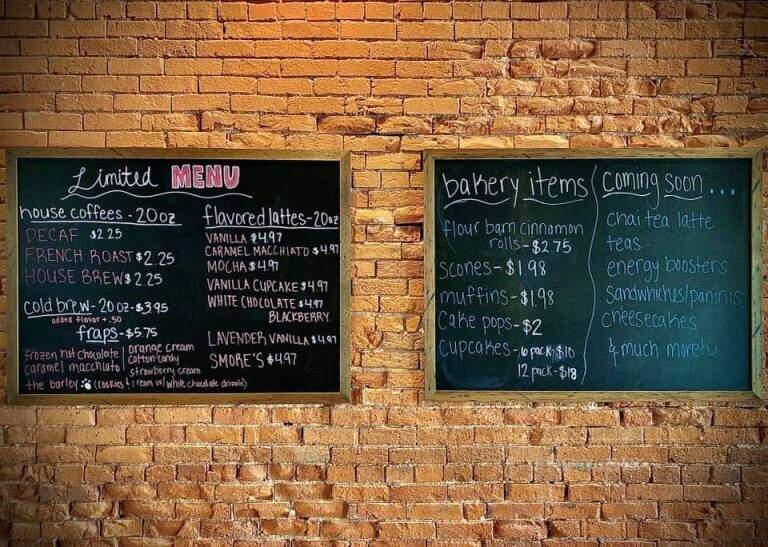 Limited MENU
house coffees - 20oz
DECAF $2.25
FRENCH ROAST $2.25
HOUSE BREW $2.25
cold brew - 20oz - $3.95
added flavor + .50
fraps - $5.75
frozen hot chocolate | orange cream
caramel macchiato | cotton candy
strawberry cream
the barley (cookies & cream w/ white chocolate drizzle)
flavored lattes - 20oz
VANILLA $4.97
CARAMEL MACCHIATO $4.97
MOCHA $4.97
VANILLA CUPCAKE $4.97
WHITE CHOCOLATE $4.97
BLACKBERRY
LAVENDER VANILLA $4.97
SMORE'S $4.97
bakery items
flour barn cinnamon
rolls - $2.75
scones - $1.98
muffins - $1.98
cake pops - $2
cupcakes - 6 pack - $10
12 pack - $18
coming soon ...
chai tea latte
teas
energy boosters
sandwhiches/paninis
cheesecakes
& much more!